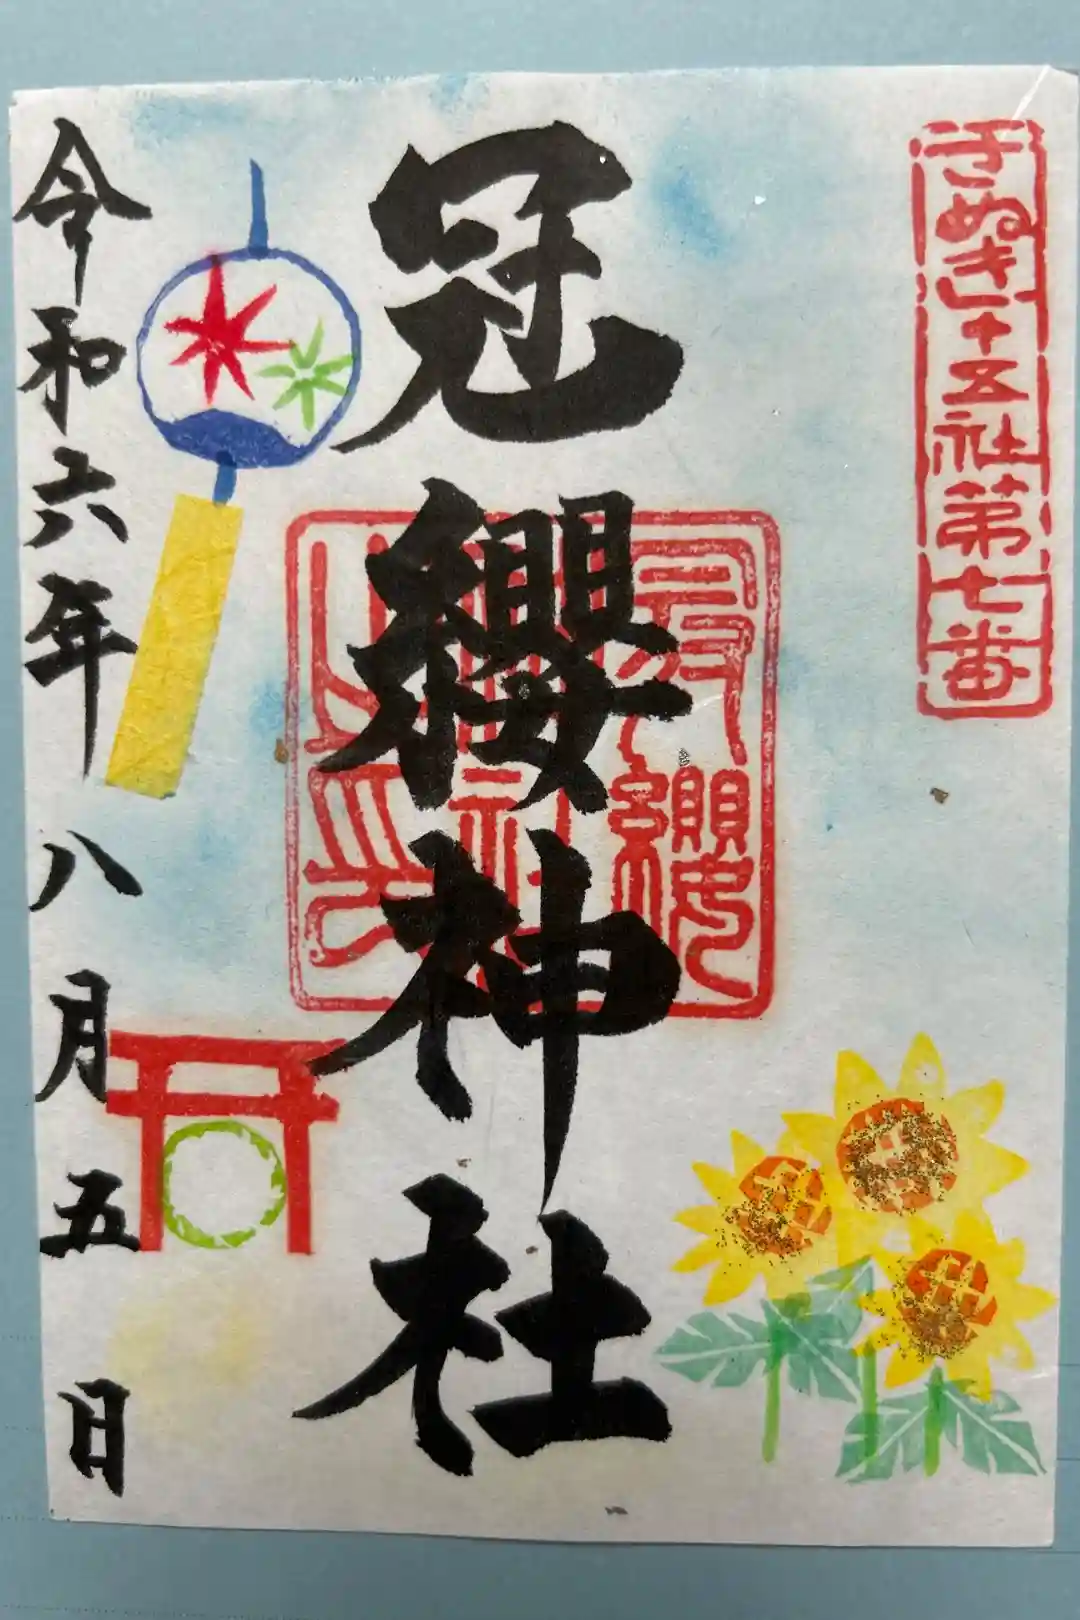 さぬき十五社第七番
冠纓神社
冠纓神社之印
令和六年八月五日